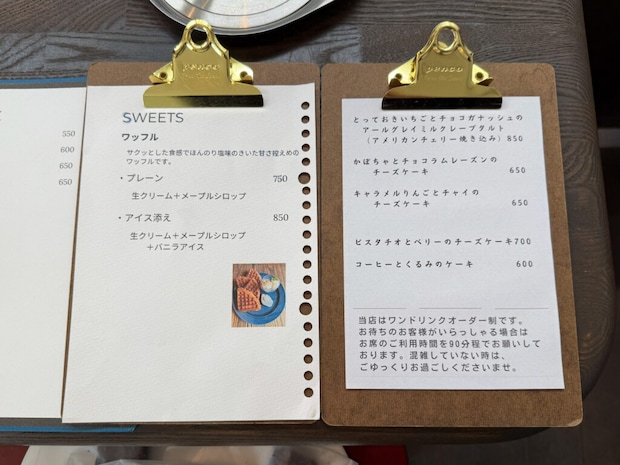 550
600
650
650
penco
SWEETS
ワッフル
サクッとした食感でほんのり塩味のきいた甘さ控えめの
ワッフルです。
・プレーン 750
生クリーム+メープルシロップ
・アイス添え 850
生クリーム+メープルシロップ
+バニラアイス
penco
とっておきいちごとチョコガナッシュの
アールグレイミルクレープタルト
(アメリカンチェリー焼き込み) 850
かぼちゃとチョコラムレーズンの
チーズケーキ 650
キャラメルりんごとチャイの
チーズケーキ 650
ピスタチオとベリーのチーズケーキ700
コーヒーとくるみのケーキ 600
当店はワンドリンクオーダー制です。
お待ちのお客様がいらっしゃる場合は
お席のご利用時間を90分程でお願いして
おります。混雑していない時は、
ごゆっくりお過ごしくださいませ。